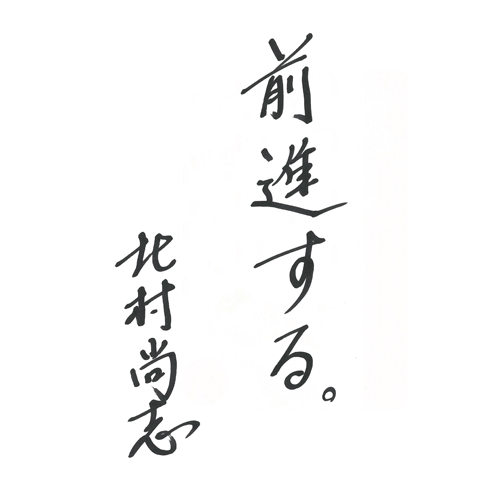 前進する。
北村尚志